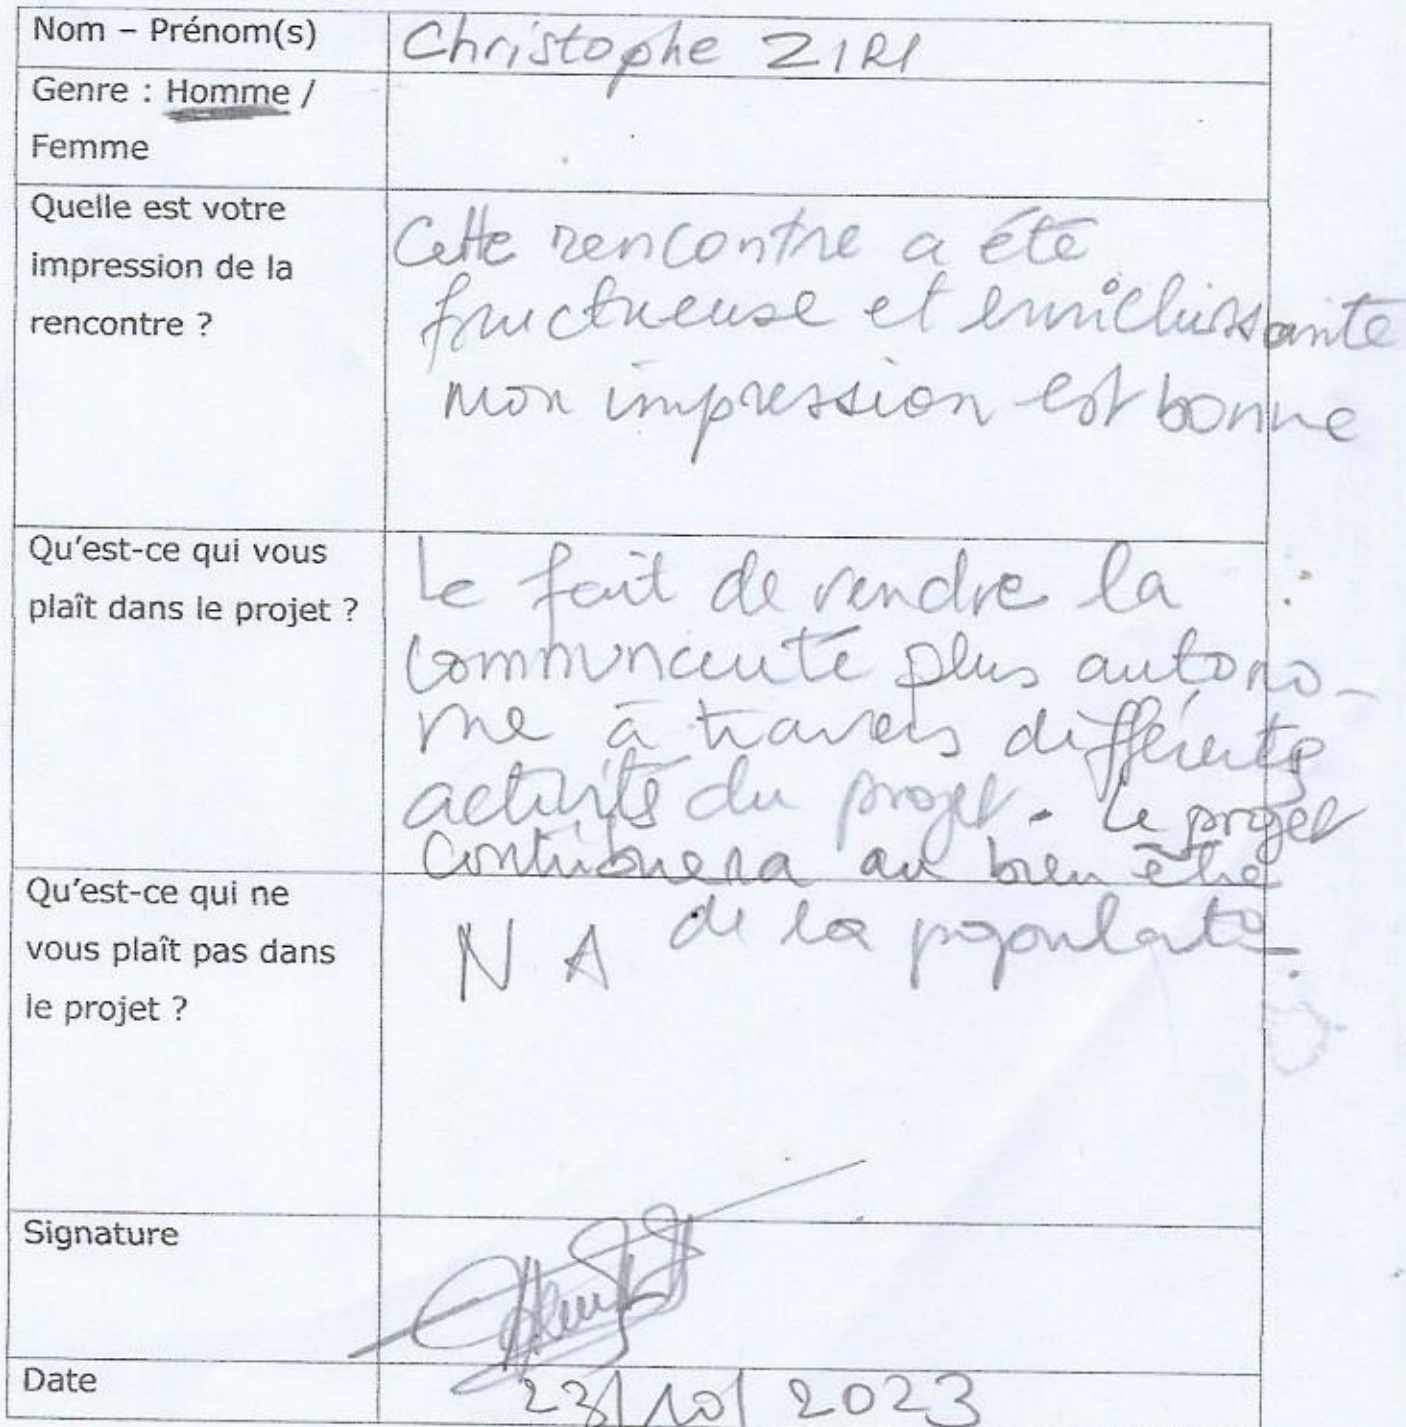 Nom – Prénom(s)
Christophe ZIRI
Genre : Homme /
Femme
Quelle est votre
impression de la
rencontre ?
Cette rencontre a été
fructueuse et enrichissante
mon impression est bonne
Qu'est-ce qui vous
plaît dans le projet ?
Le fait de rendre la
communauté plus autono-
me à travers différents
activités du projet. Le projet
contribuera au bien être
de la populato.
Qu'est-ce qui ne
vous plaît pas dans
le projet ?
NA
Signature
Date
23/10/2023